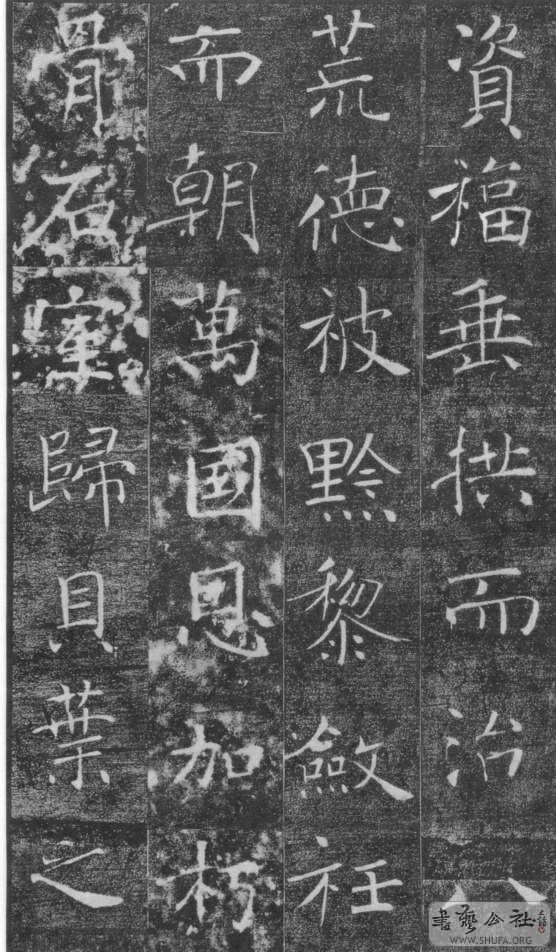 資福垂拱而治八
荒德被黔黎斂衽
而朝萬國恩加朽
骨石室歸貝葉之
書藝公社
WWW.SHUFA.ORG